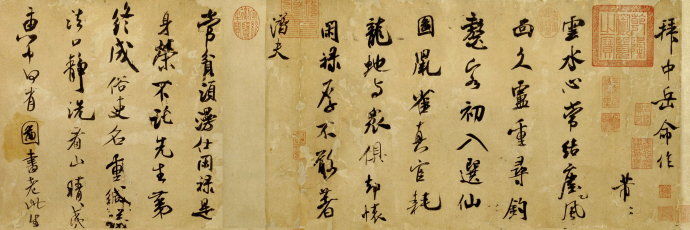 拜中岳命作
芾〻
雲水心常結塵風
面久盧重尋釣
鼇客初入選仙
圖鼠雀真官耗
龍虵與衆俱却懷
閑祿厚不敢著
潛夫
常貧須漫仕閑祿是
身榮不託先生第
終成俗吏名重緘議
法口靜洗看山晴夷
惠中何有圖書老此生